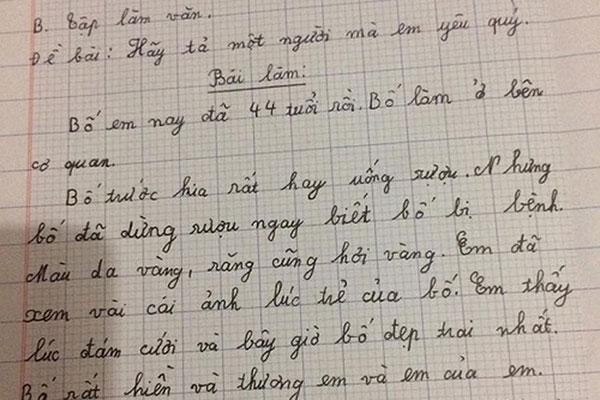 B. Tập làm văn.
Đề bài: Hãy tả một người mà em yêu quý.
Bài làm:
Bố em nay đã 44 tuổi rồi. Bố làm ở bên
cơ quan.
Bố trước kia rất hay uống rượu. Nhưng
bố đã dừng rượu ngay biết bố bị bệnh.
Màu da vàng, răng cũng hơi vàng. Em đã
xem vài cái ảnh lúc trẻ của bố. Em thấy
lúc đám cưới và bây giờ bố đẹp trai nhất.
Bố rất hiền và thương em và em của em.